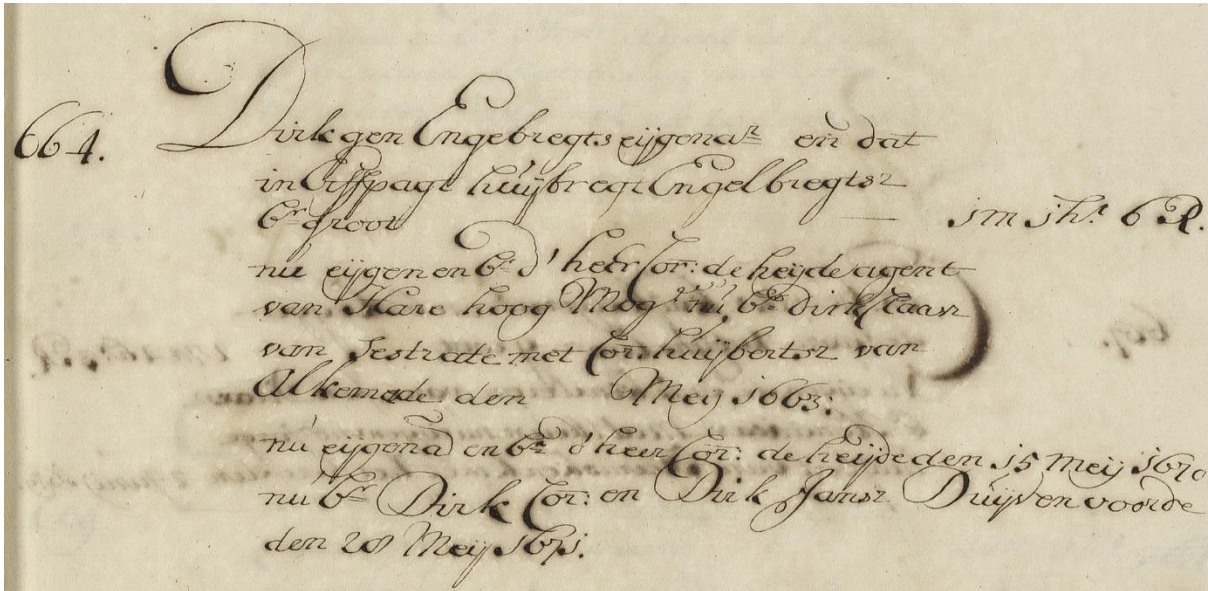 664. Dirkgen Engebregts eijgenar en dat
in Erffpagt huijbregt Engelbregtsz
br groot — 1 m 1 h. 6 R.
nu eijgen en br d'heer Cor: de heijde agent
van Hare hoog Mog nu br dirk Claasz
van Sestrate met Cor: huijbertsz van
Alkemade den Meij 1663:
nu eijgena en br d'heer Cor: de heijde den 15 Meij 1670
nu br Dirk Cor: en Dirk Jansz Duijvenvoorde
den 28 Meij 1671.